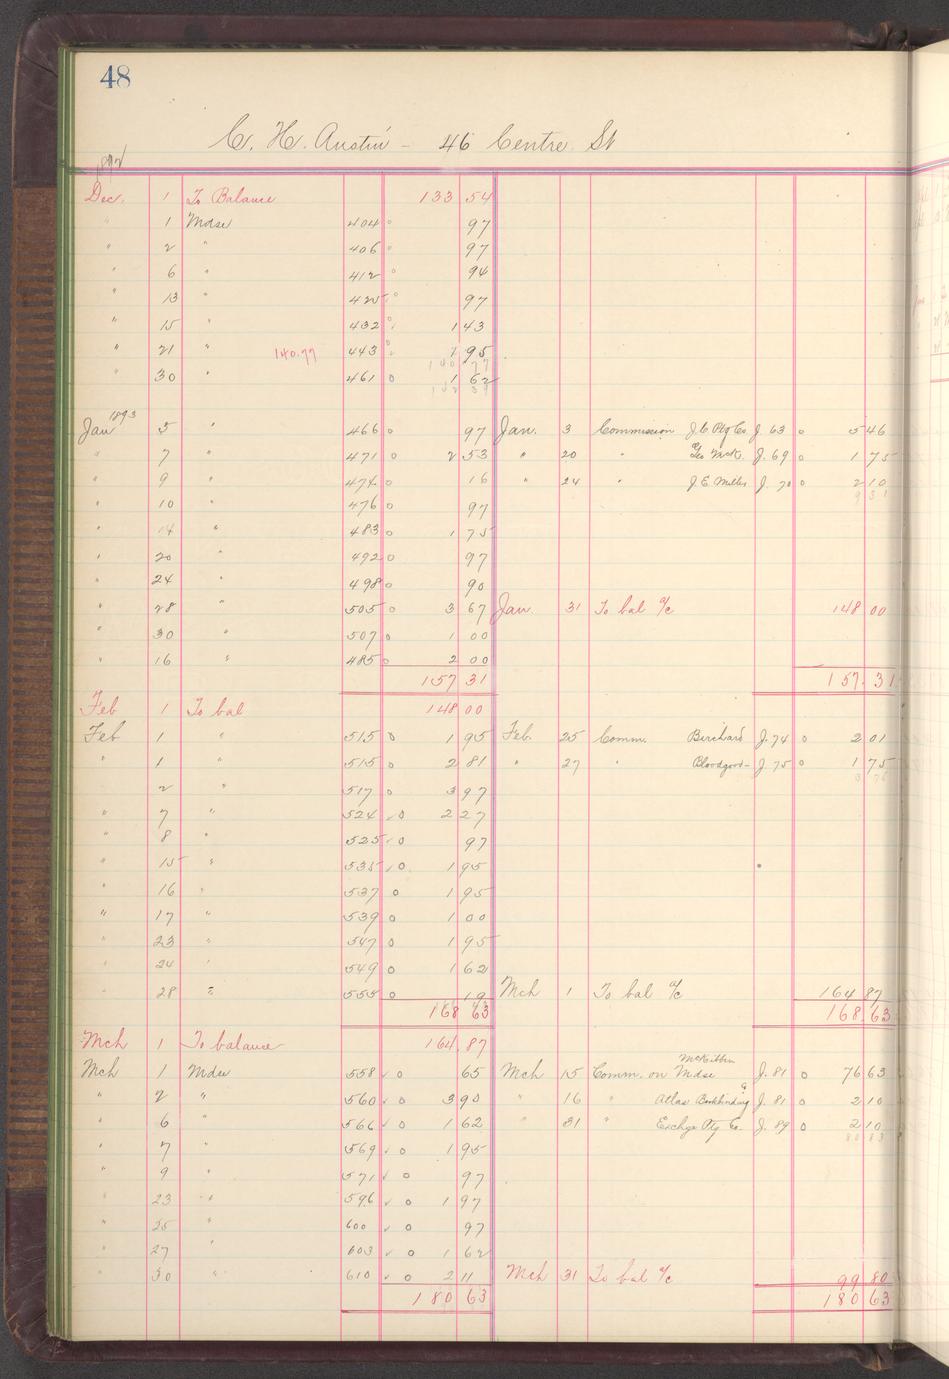 48
C. H. Austin - 46 Centre St
1892
Dec. 1 To Balance 133 54
" 1 Mdse 404 97
" 2 " 406 97
" 6 " 412 94
" 13 " 425 97
" 15 " 432 1 43
" 21 " 140.77 443 1 95
140 77
" 30 " 461 1 62
142 39
1893
Jan 5 " 466 97 Jan. 3 Commission J.C. Ptg Co J. 63 5 46
" 7 " 471 2 53 " 20 " Geo McK. J. 69 1 75
" 9 " 474 16 " 24 " J.E. Miller J. 70 2 10
9 31
" 10 " 476 97
" 14 " 483 1 75
" 20 " 492 97
" 24 " 498 90
" 28 " 505 3 67 Jan. 31 To bal a/c 148 00
" 30 " 507 1 00
" 16 " 485 2 00
157 31 157.31
Feb 1 To bal 148 00
Feb 1 " 515 1 95 Feb. 25 Comm. Birchard J. 74 2 01
" 1 " 515 2 81 " 27 " Bloodgood J. 75 1 75
3 76
2 " 517 3 97
" 7 " 524 2 27
" 8 " 525 97
" 15 " 535 1 95
" 16 " 537 1 95
" 17 " 539 1 00
" 23 " 547 1 95
" 24 " 549 1 62
" 28 " 555 19 Mch 1 To bal a/c 164 87
168 63 168.63
Mch 1 To balance 164.87
McKibbin
Mch 1 Mdse 558 65 Mch 15 Comm. on Mdse J. 81 76 63
" 2 " 560 3 90 " 16 " Atlas Bookbinding J. 81 2 10
" 6 " 566 1 62 " 31 " Exchge Ptg Co. J. 89 2 10
80 83
" 7 " 569 1 95
" 9 " 571 97
" 23 " 596 1 97
" 25 " 600 97
" 27 " 603 1 62
" 30 " 610 2 11 Mch 31 To bal a/c 99 80
180 63 180 63